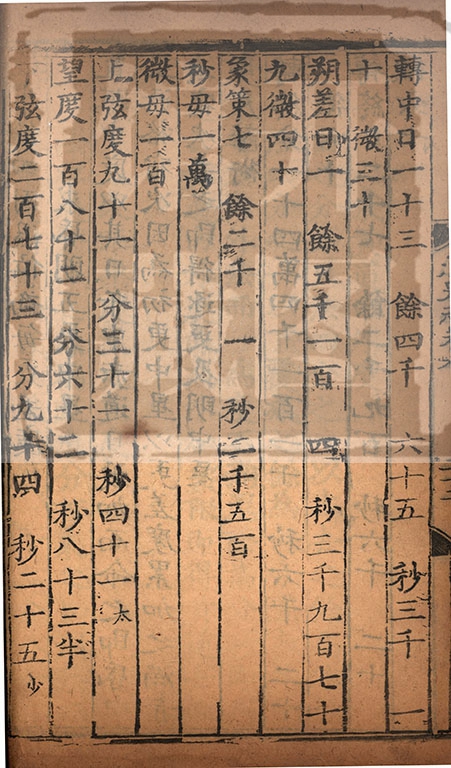 轉中日一十三　餘四千　六十五　秒三千　一
十　微三十
朔差日一　餘五千一百　四　秒三千九百七十
九微四十
象策七　餘二千　一　秒二千五百
秒母一萬
微母一百
上弦度九十一　分三十一　秒四十一太
望度一百八十二　分六十二　秒八十三半
下弦度二百七十三　分九十四　秒二十五少